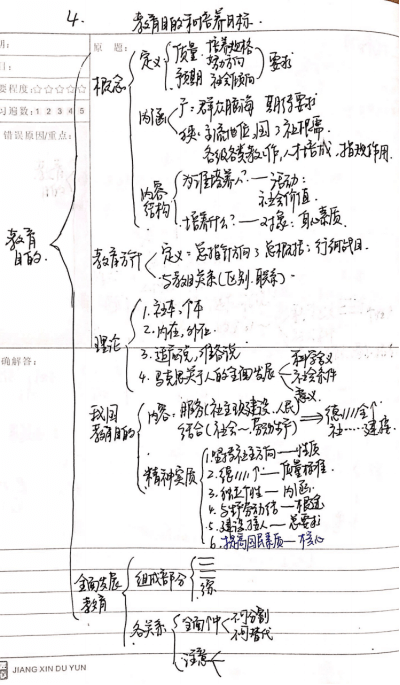 4. 教育目的和培养目标.
原 题:
要程度:☆☆☆☆☆
习遍数:1 2 3 4 5
错误原因/重点:
确解答:
教育目的.
概念
定义
质量. 培养规格
努力方向
预期 社会倾向
要求
内涵
广: 群众 期待要求
狭: 主流地位,国
各级各类教工作,人才培成,指挥作用.
内容结构
为谁培养人?——活动:
社会价值.
培养什么?——对象: 身心素质.
教育方针
定义: 总指针方向
与教目关系(区别.联系).
理论
1. 社本, 个本
2. 内在, 外在.
3. 适应说,
4. 马克思关于人的全面发展
科学含义
社会条件
意义
我国教育目的
内容: 服务(社主现建设,人民)
结合(社会~,劳动生产)
精神实质
1.坚持社主方向——性质
3. 独立个性——内涵.
4. 与生劳动结——根途
5. 建设接人——总要求
6. 提高国民素质——核心
全面发展教育
组成部分
三
二
各关系
全面个中
不可分割
不可替代
注意
JIANG XIN DU YUN